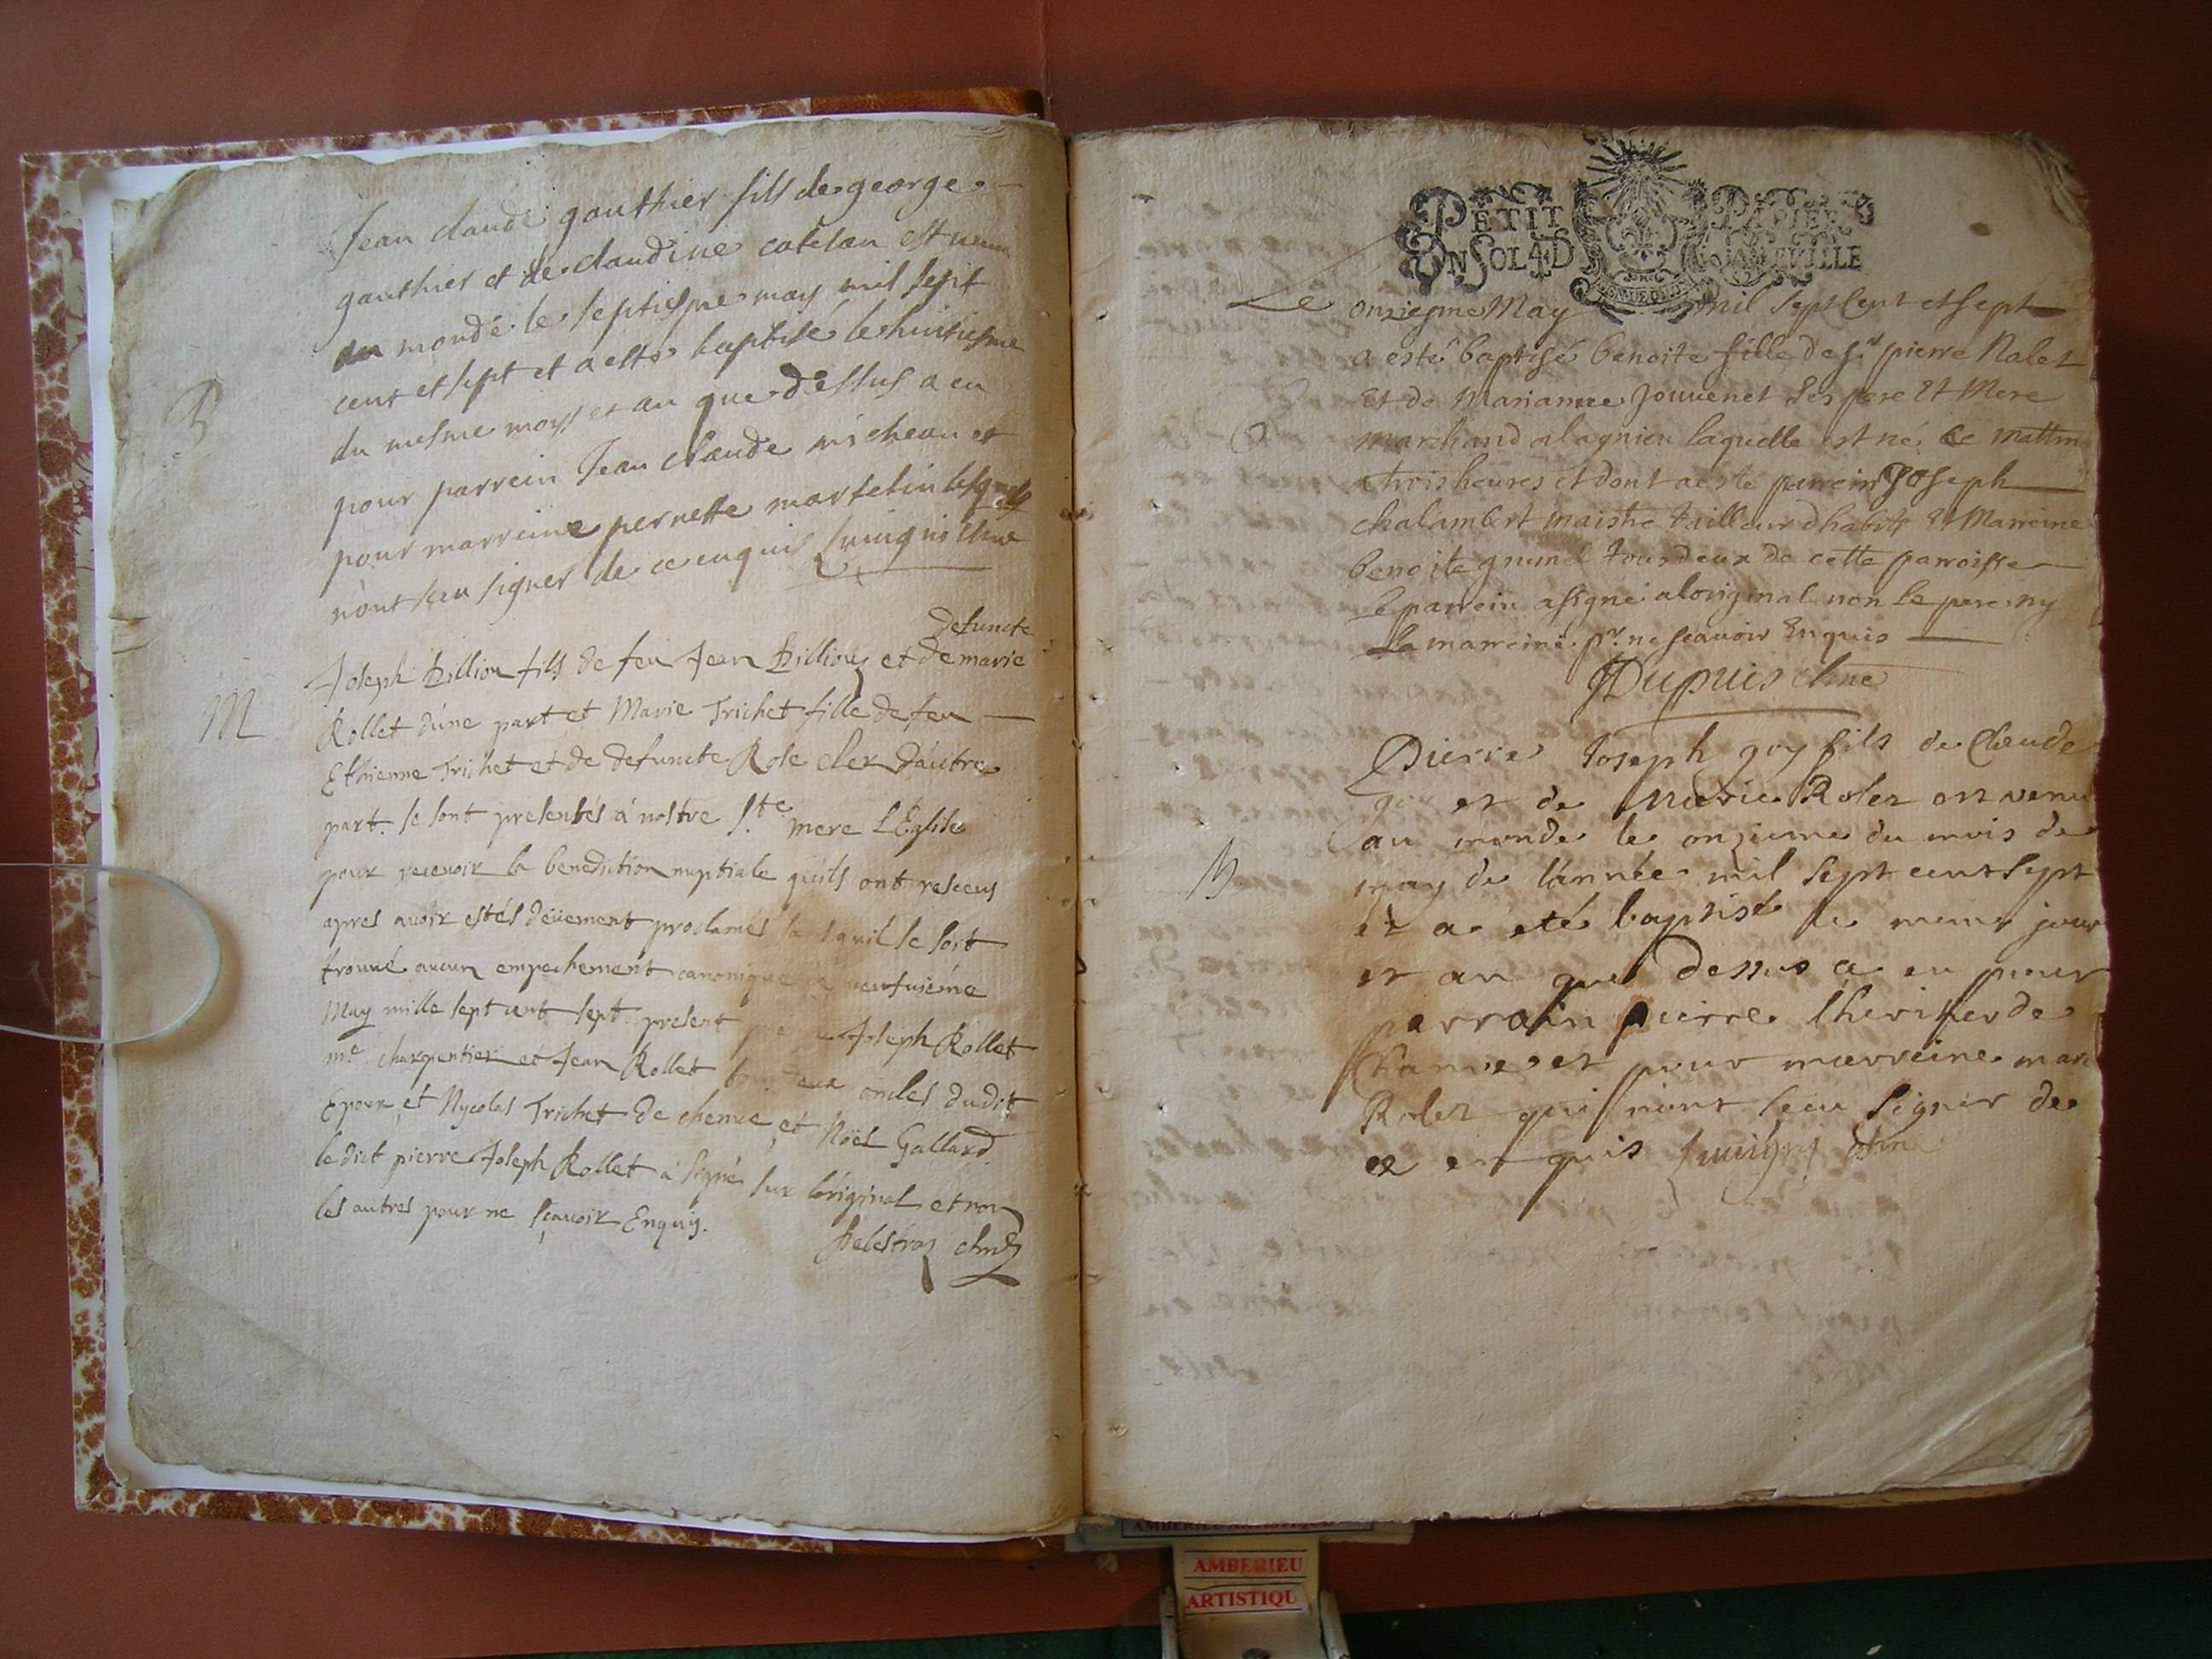 Jean claude gauthier fils de george
gauthier et de claudine catelan est venu
au monde le septiesme may mil sept
cent et sept et a esté baptisé le huitiesme
B
du mesme moys et an que dessus a eu
pour parrein Jean claude micheau et
pour marreine pernette martelin lesquels
n'ont sceu signer de ce enquis
defuncte
Joseph Billion fils de feu Jean Billion et de marie
M
Rollet d'une part et Marie Trichet fille de feu
Ethienne Trichet et de defuncte Rose cler d'autre
part. se sont presentés à nostre S.te mere L'Eglise
pour recevoir la benediction nuptiale qu'ils ont resceus
apres avoir estés deüement proclamés sans quil se soit
trouvé aucun empechement canonique ce neufuiéme
May mille sept cent sept. present pierre Joseph Rollet
m.e charpentier et Jean Rollet tous deux oncles dudit
Epoux, et Nycolas Trichet de chemce, et Noël Gallard.
le dict pierre Joseph Rollet à signé sur l'original et non
les autres pour ne sçavoir Enquis.
PETIT PAPIER
UN SOL 4 D LA FEVILLE
Le onziesme May mil sept Cent et sept
a esté baptisé benoite fille de s.r pierre Nalet
Et de Marianne Jouvenet ses pere Et Mere
marchand a lagnieu laquelle est né ce mattin
a trois heures et dont a esté parrein Joseph
chalambert maistre tailleur d'habits Et Marreine
benoite tous deux de cette parroisse
le parrein a signé a loriginal non le pere ny
la marreine p.r ne scavoir Enquis
Dupuis
Pierre Joseph goy fils de Claude
goy et de Marie Rolet est venu
au monde le onzieme du mois de
B
may de l'année mil sept cent sept
et a eté baptisé le meme jour
et an que dessus a eu pour
parrain pierre de
et pour marreine
Rolet qui n'ont sceu signer de
ce enquis
AMBERIEU
ARTISTIQU